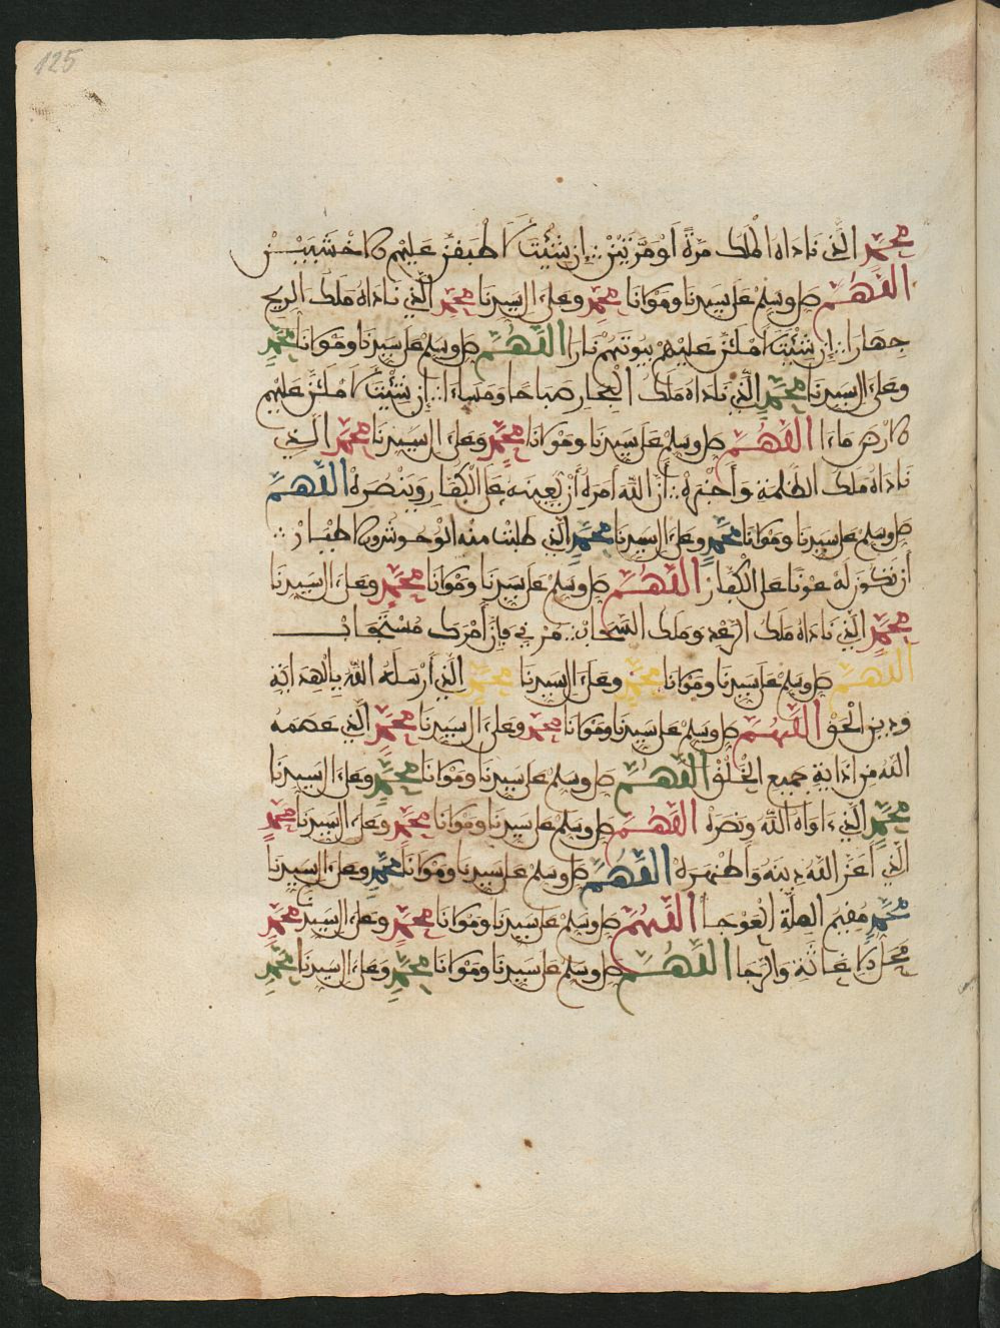 125
محمد الذي ناداه الملك مرة أو مرتين إن شئت لأطبقن عليهم الأخشبين
اللهم صل وسلم على سيدنا ومولانا محمد وعلى ءال سيدنا محمد الذي ناداه ملك الريح
جهارا إن شئت لأملأن عليهم بيوتهم نارا اللهم صل وسلم على سيدنا ومولانا محمد
وعلى ءال سيدنا محمد الذي ناداه ملك البحار صباحا ومساء إن شئت لأملأن عليهم
الأرض ماء اللهم صل وسلم على سيدنا ومولانا محمد وعلى ءال سيدنا محمد الذي
ناداه ملك الظلمة وأجنه أن الله أمره أن يعينه على الكفار وينصره اللهم
صل وسلم على سيدنا ومولانا محمد وعلى ءال سيدنا محمد الذي طلبت منه الوحوش والأطيار
أن تكون له عونا على الكفار اللهم صل وسلم على سيدنا ومولانا محمد وعلى ءال سيدنا
محمد الذي ناداه ملك الرعد وملك السحاب مرني فإن أمرك مستجاب
اللهم صل وسلم على سيدنا ومولانا محمد وعلى ءال سيدنا محمد الذي أرسله الله بالهداية
ودين الحق اللهم صل وسلم على سيدنا ومولانا محمد وعلى ءال سيدنا محمد الذي عصمه
الله من اذاية جميع الخلق اللهم صل وسلم على سيدنا ومولانا محمد وعلى ءال سيدنا
محمد الذي ءاواه الله ونصره اللهم صل وسلم على سيدنا ومولانا محمد وعلى ءال سيدنا محمد
الذي أعز الله دينه وأظهره اللهم صل وسلم على سيدنا ومولانا محمد وعلى ءال سيدنا
محمد مقيم الملة العوجا اللهم صل وسلم على سيدنا ومولانا محمد وعلى ءال سيدنا محمد
محل الإغاثة والرجا اللهم صل وسلم على سيدنا ومولانا محمد وعلى ءال سيدنا محمد